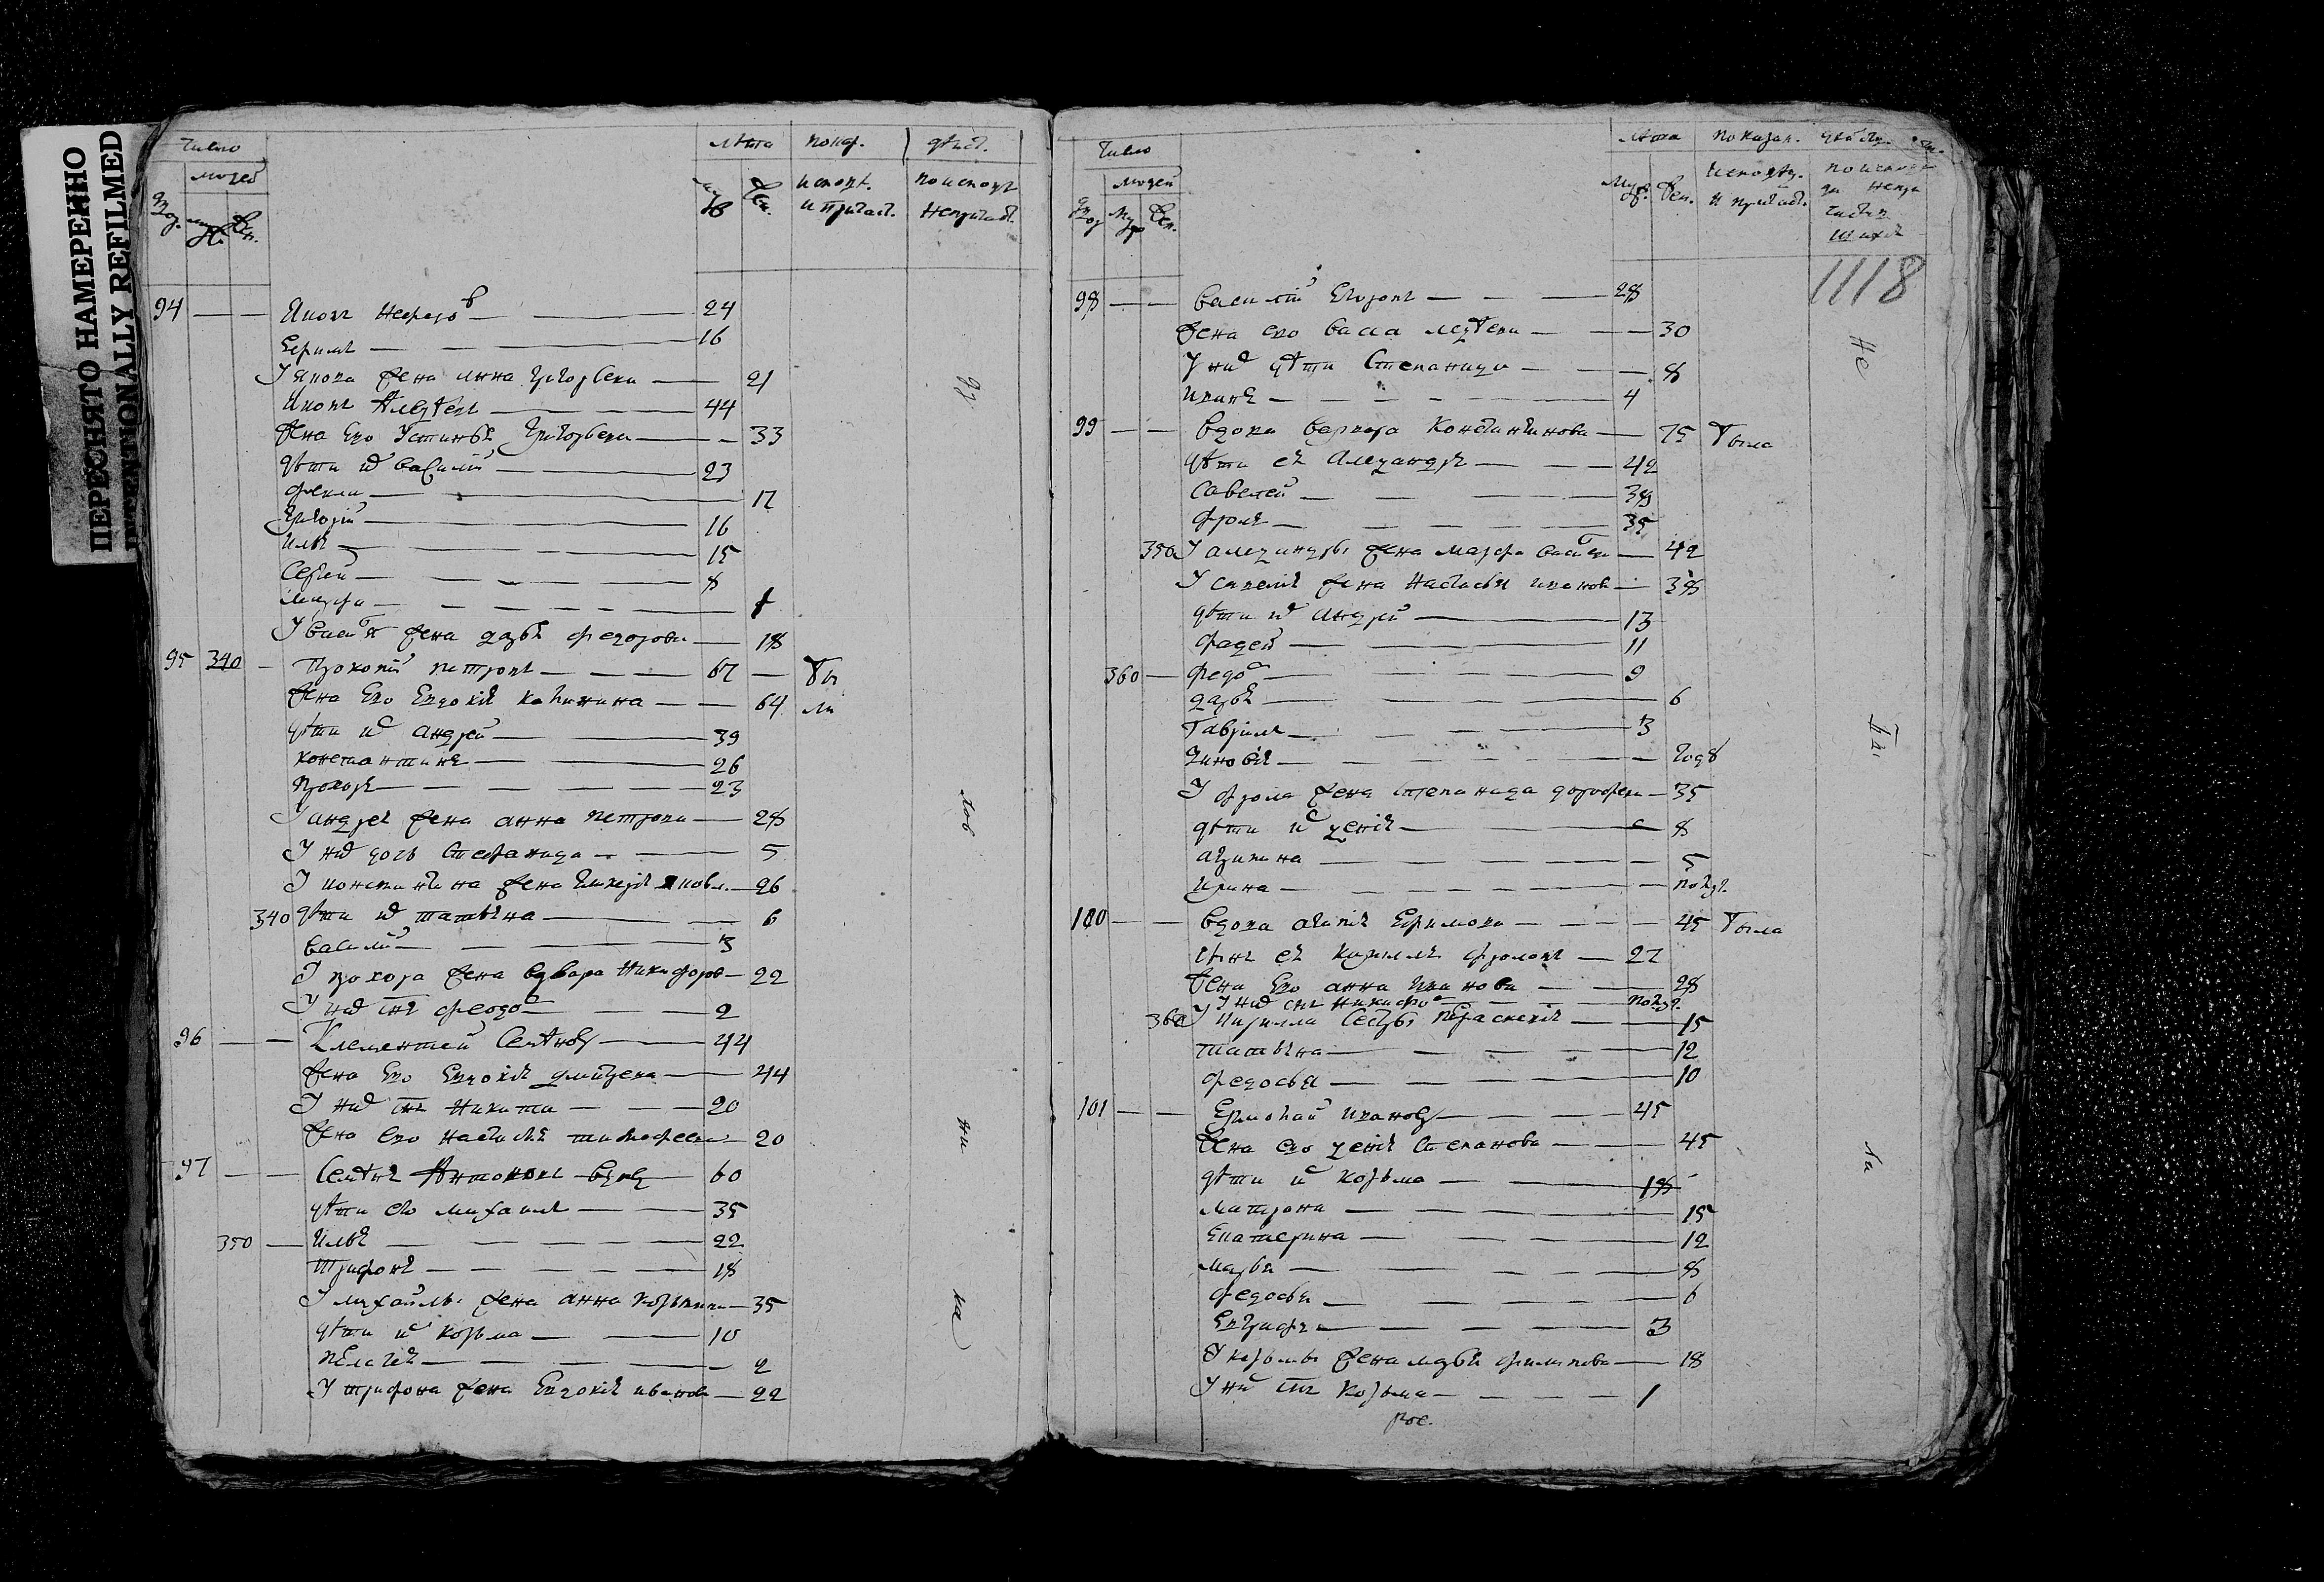 ПЕРЕСНЯТО НАМЕРЕННО
INTENTIONALLY REFILMED
Число
людей
лѣта
показ.
дѣист.
94 Яковъ Нефедов 24
Ефимъ 16
У Якова жена Анна Григорьева 21
Яковъ Алеѯѣевъ 44
Жена Его Устинья Григорьева 33
дѣти их Василий 23
Фекла 17
Григорий 16
Илья 15
Сергей 8
Марфа
У Василья жена дарья федорова 18
95 340 Прокопий петровъ 67 Бы
Жена Его Евдокия калинина 64 ли
дѣти их андрей 39
константинъ 26
Прохоръ 23
У андрея жена анна петрова 28
У них дочь Стефанида 5
У константина жена Гликерия яковл. 26
340 дѣти их татьяна 6
василий 3
У прохора жена варвара Никифоров 22
У них сынъ феодор 2
96 Клементей Семеновъ 44
жена Его Евдокия дмитрева 44
У них сынъ Никита 20
жена его настасья тимофеева 20
97 Семенъ Антоновъ вдовъ 60
дѣти его михаилъ 35
350 Илья 22
Трифонъ 18
У михаилы жена анна козьмина 35
дѣти их козьма 10
пелагея 2
У трифона жена Евдокия иванова 22
Число
людей
лѣта показан.
1118
98 Василий Егоровъ 28
жена его васса алеѯѣева 30
У них дѣти Степанида 8
иванъ 4
99 Вдова варвара Константинова 75 Была
дѣти ея Алеѯандръ 42
Савелей 38
Фролъ 35
350 У алеѯандры жена марфа васил 42
У савелья жена Настасья иванов 38
дѣти их Андрей 13
Фадей 11
360 федор 9
дарья 6
Гаврила 3
Зиновья году
У фрола жена степанида дорофеева 35
дѣти их ѯения 8
агрипина 5
ирина полуг.
100 Вдова Ефимова 45 Была
сынъ ея кирилла фроловъ 27
жена Его анна иванова 28
У них сынъ никифор полуг.
У кирилла сестры Параскевия 15
татьяна 12
федосья 10
101 Ермолай ивановъ 45
жена его ѯения Степанова 45
дѣти их козьма 18
Матрона 15
Екатерина 12
марья 8
федосья 6
Евграфъ 3
У козьмы жена марья филипова 18
У них сынъ козьма 1